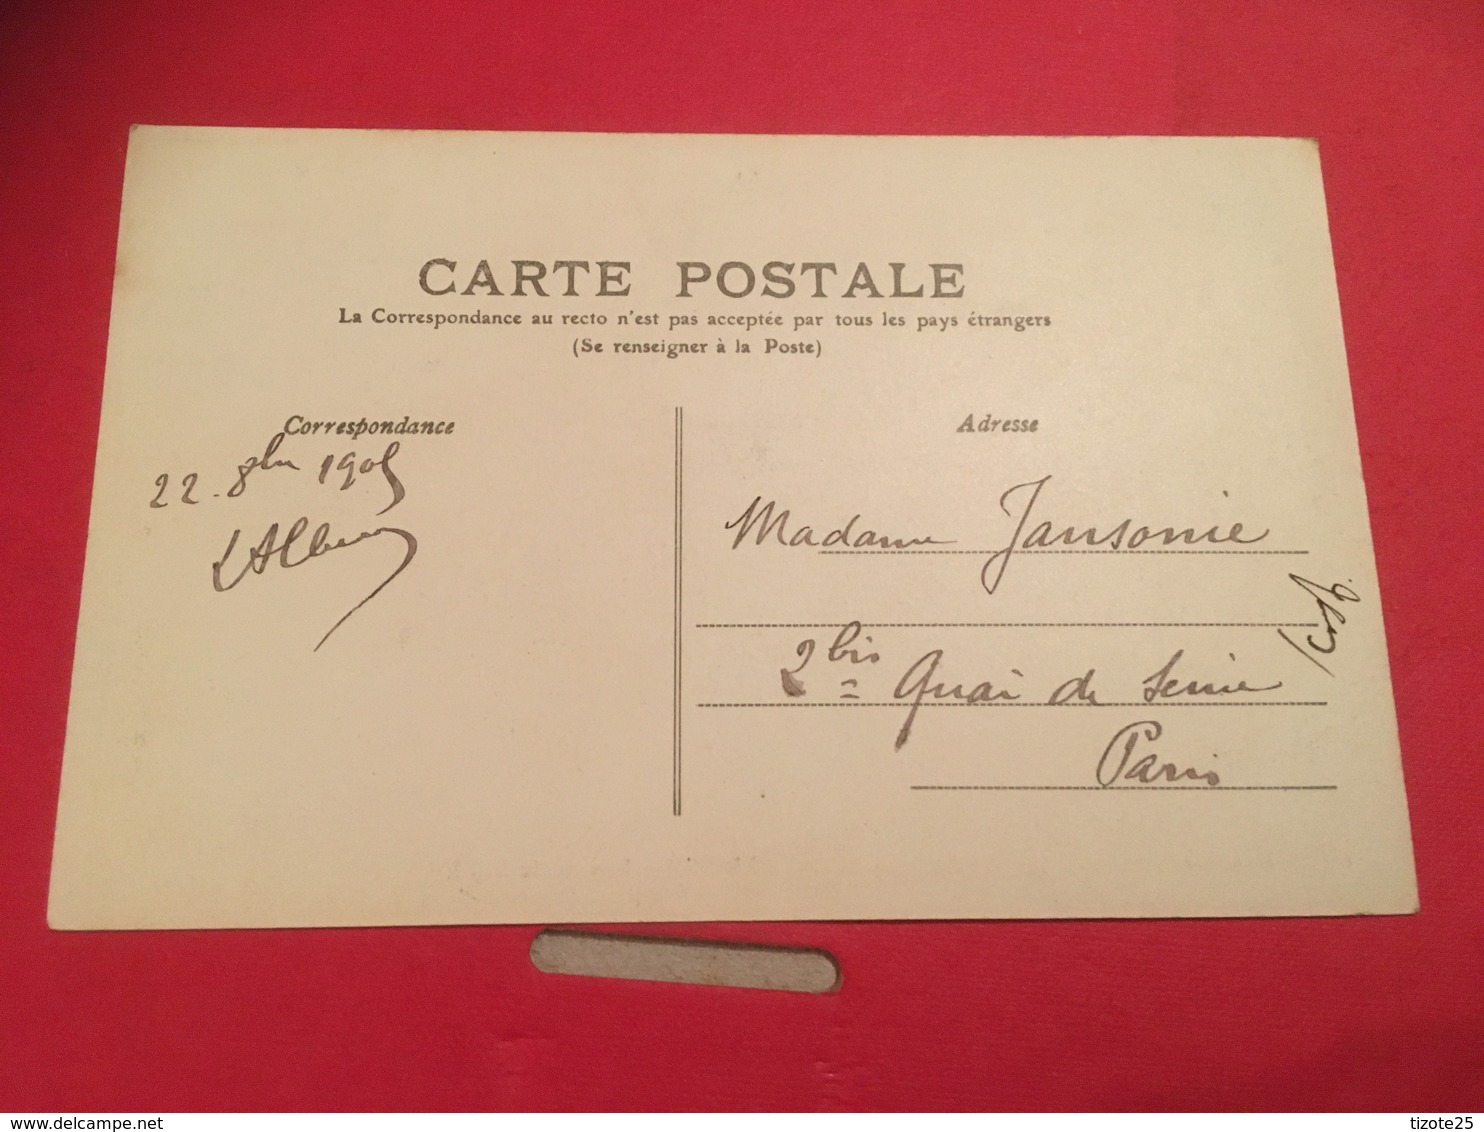 CARTE POSTALE
La Correspondance au recto n'est pas acceptée par tous les pays étrangers
(Se renseigner à la Poste)
Correspondance
22. 8bre 1905
Adresse
Madame Jansonie
2bis Quai de Seine
Paris
tizote25